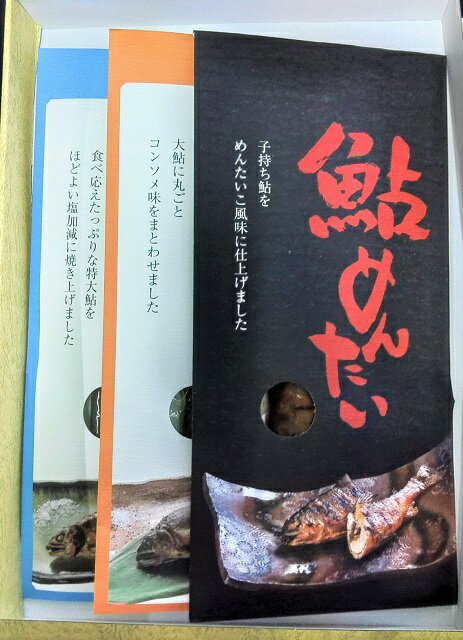 鮎めんたい
子持ち鮎を
めんたいこ風味に仕上げました
大鮎に丸ごと
コンソメ味をまとわせました
食べ応えたっぷりな特大鮎を
ほどよい塩加減に焼き上げました